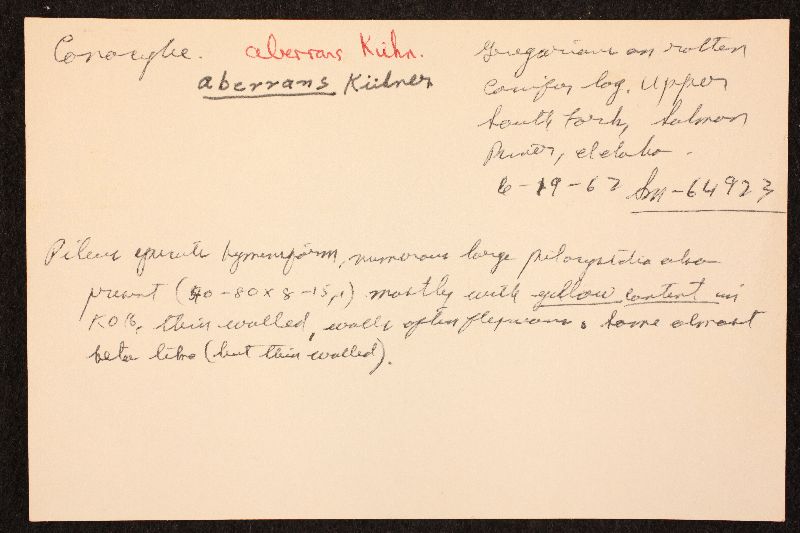 Conocybe. aberrans Kühn.
aberrans Kühner
Gregarious on rotten
conifer log. Upper
South Fork, Salmon
River, Idaho.
6-19-62 Sm-64923
Pileus epicutis hymeniform, numerous large pilocystidia also
present (50-80 x 8-15 µ) mostly with yellow content in
KOH, thin walled, walls often flexuous, some almost
seta like (but thin walled).